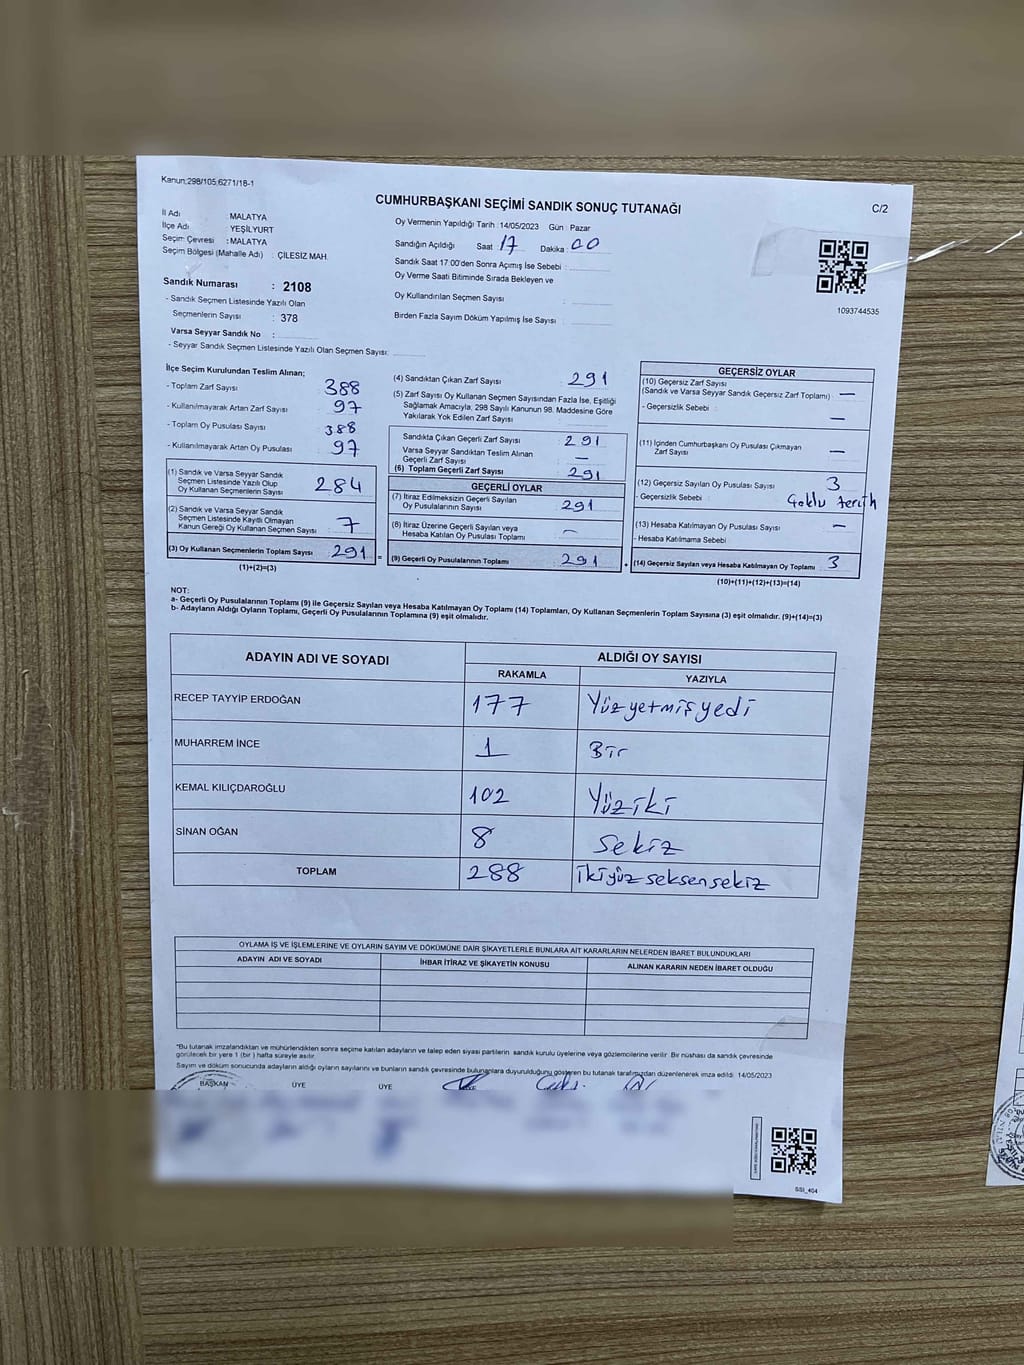 Kanun;298/105;6271/18-1
CUMHURBAŞKANI SEÇİMİ SANDIK SONUÇ TUTANAĞI
C/2
İl Adı : MALATYA
İlçe Adı : YEŞİLYURT
Seçim Çevresi : MALATYA
Seçim Bölgesi (Mahalle Adı) : ÇİLESİZ MAH.
Oy Vermenin Yapıldığı Tarih : 14/05/2023 Gün : Pazar
Sandığın Açıldığı Saat 17 Dakika : 00
Sandık Saat 17:00'den Sonra Açımış İse Sebebi :
Oy Verme Saati Bitiminde Sırada Bekleyen ve
Oy Kullandırılan Seçmen Sayısı :
Birden Fazla Sayım Döküm Yapılmış İse Sayısı :
1093744535
Sandık Numarası : 2108
- Sandık Seçmen Listesinde Yazılı Olan
Seçmenlerin Sayısı : 378
Varsa Seyyar Sandık No :
- Seyyar Sandık Seçmen Listesinde Yazılı Olan Seçmen Sayısı:
İlçe Seçim Kurulundan Teslim Alınan;
- Toplam Zarf Sayısı 388
- Kullanılmayarak Artan Zarf Sayısı 97
- Toplam Oy Pusulası Sayısı 388
- Kullanılmayarak Artan Oy Pusulası 97
(1) Sandık ve Varsa Seyyar Sandık
Seçmen Listesinde Yazılı Olup
Oy Kullanan Seçmenlerin Sayısı 284
(2) Sandık ve Varsa Seyyar Sandık
Seçmen Listesinde Kayıtlı Olmayan
Kanun Gereği Oy Kullanan Seçmen Sayısı 7
(3) Oy Kullanan Seçmenlerin Toplam Sayısı 291 =
(1)+(2)=(3)
(4) Sandıktan Çıkan Zarf Sayısı 291
(5) Zarf Sayısı Oy Kullanan Seçmen Sayısından Fazla İse, Eşitliği
Sağlamak Amacıyla, 298 Sayılı Kanunun 98. Maddesine Göre
Yakılarak Yok Edilen Zarf Sayısı :
Sandıkta Çıkan Geçerli Zarf Sayısı : 291
Varsa Seyyar Sandıktan Teslim Alınan
Geçerli Zarf Sayısı : —
(6) Toplam Geçerli Zarf Sayısı : 291
GEÇERLİ OYLAR
(7) İtiraz Edilmeksizin Geçerli Sayılan
Oy Pusulalarının Sayısı : 291
(8) İtiraz Üzerine Geçerli Sayılan veya
Hesaba Katılan Oy Pusulaları Toplamı : —
(9) Geçerli Oy Pusulalarının Toplamı : 291 +
GEÇERSİZ OYLAR
(10) Geçersiz Zarf Sayısı
(Sandık ve Varsa Seyyar Sandık Geçersiz Zarf Toplamı) : —
- Geçersizlik Sebebi : —
(11) İçinden Cumhurbaşkanı Oy Pusulası Çıkmayan
Zarf Sayısı : —
(12) Geçersiz Sayılan Oy Pusulası Sayısı : 3
- Geçersizlik Sebebi : Çoklu tercih
(13) Hesaba Katılmayan Oy Pusulası Sayısı : —
- Hesaba Katılmama Sebebi
(14) Geçersiz Sayılan veya Hesaba Katılmayan Oy Toplamı 3
(10)+(11)+(12)+(13)=(14)
NOT:
a- Geçerli Oy Pusulalarının Toplamı (9) ile Geçersiz Sayılan veya Hesaba Katılmayan Oy Toplamı (14) Toplamları, Oy Kullanan Seçmenlerin Toplam Sayısına (3) eşit olmalıdır. (9)+(14)=(3)
b- Adayların Aldığı Oyların Toplamı, Geçerli Oy Pusulalarının Toplamına (9) eşit olmalıdır.
ADAYIN ADI VE SOYADI ALDIĞI OY SAYISI
RAKAMLA YAZIYLA
RECEP TAYYİP ERDOĞAN 177 Yüzyetmişyedi
MUHARREM İNCE 1 Bir
KEMAL KILIÇDAROĞLU 102 Yüziki
SİNAN OĞAN 8 Sekiz
TOPLAM 288 ikiyüzseksensekiz
OYLAMA İŞ VE İŞLEMLERİNE VE OYLARIN SAYIM VE DÖKÜMÜNE DAİR ŞİKAYETLERLE BUNLARA AİT KARARLARIN NELERDEN İBARET BULUNDUKLARI
ADAYIN ADI VE SOYADI İHBAR İTİRAZ VE ŞİKAYETİN KONUSU ALINAN KARARIN NEDEN İBARET OLDUĞU
*Bu tutanak imzalandıktan ve mühürlendikten sonra seçime katılan adayların ve talep eden siyasi partilerin sandık kurulu üyelerine veya gözlemcilerine verilir. Bir nüshası da sandık çevresinde
görülecek bir yere 1 (bir ) hafta süreyle asılır.
Sayım ve döküm sonucunda adayların aldığı oyların sayılarını ve bunların sandık çevresinde bulunanlara duyurulduğunu gösteren bu tutanak tarafımızdan düzenlenerek imza edildi. 14/05/2023
BAŞKAN ÜYE ÜYE
SSI_404